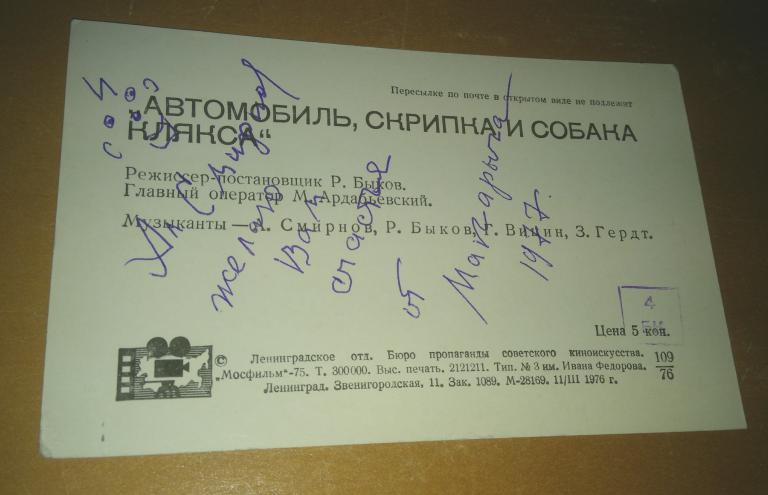 Пересылке по почте в открытом виде не подлежит
„АВТОМОБИЛЬ, СКРИПКА И СОБАКА
КЛЯКСА“
Режиссер-постановщик Р. Быков.
Главный оператор М. Ардабьевский.
Музыканты — А. Смирнов, Р. Быков, Г. Вицин, З. Гердт.
желаю
Вам
счастья
от
1977.
4
Цена 5 коп.
© Ленинградское отд. Бюро пропаганды советского киноискусства.
„Мосфильм“-75. Т. 300000. Выс. печать. 2121211. Тип. № 3 им. Ивана Федорова.
Ленинград. Звенигородская, 11. Зак. 1089. М-28169. 11/III 1976 г.
109
76